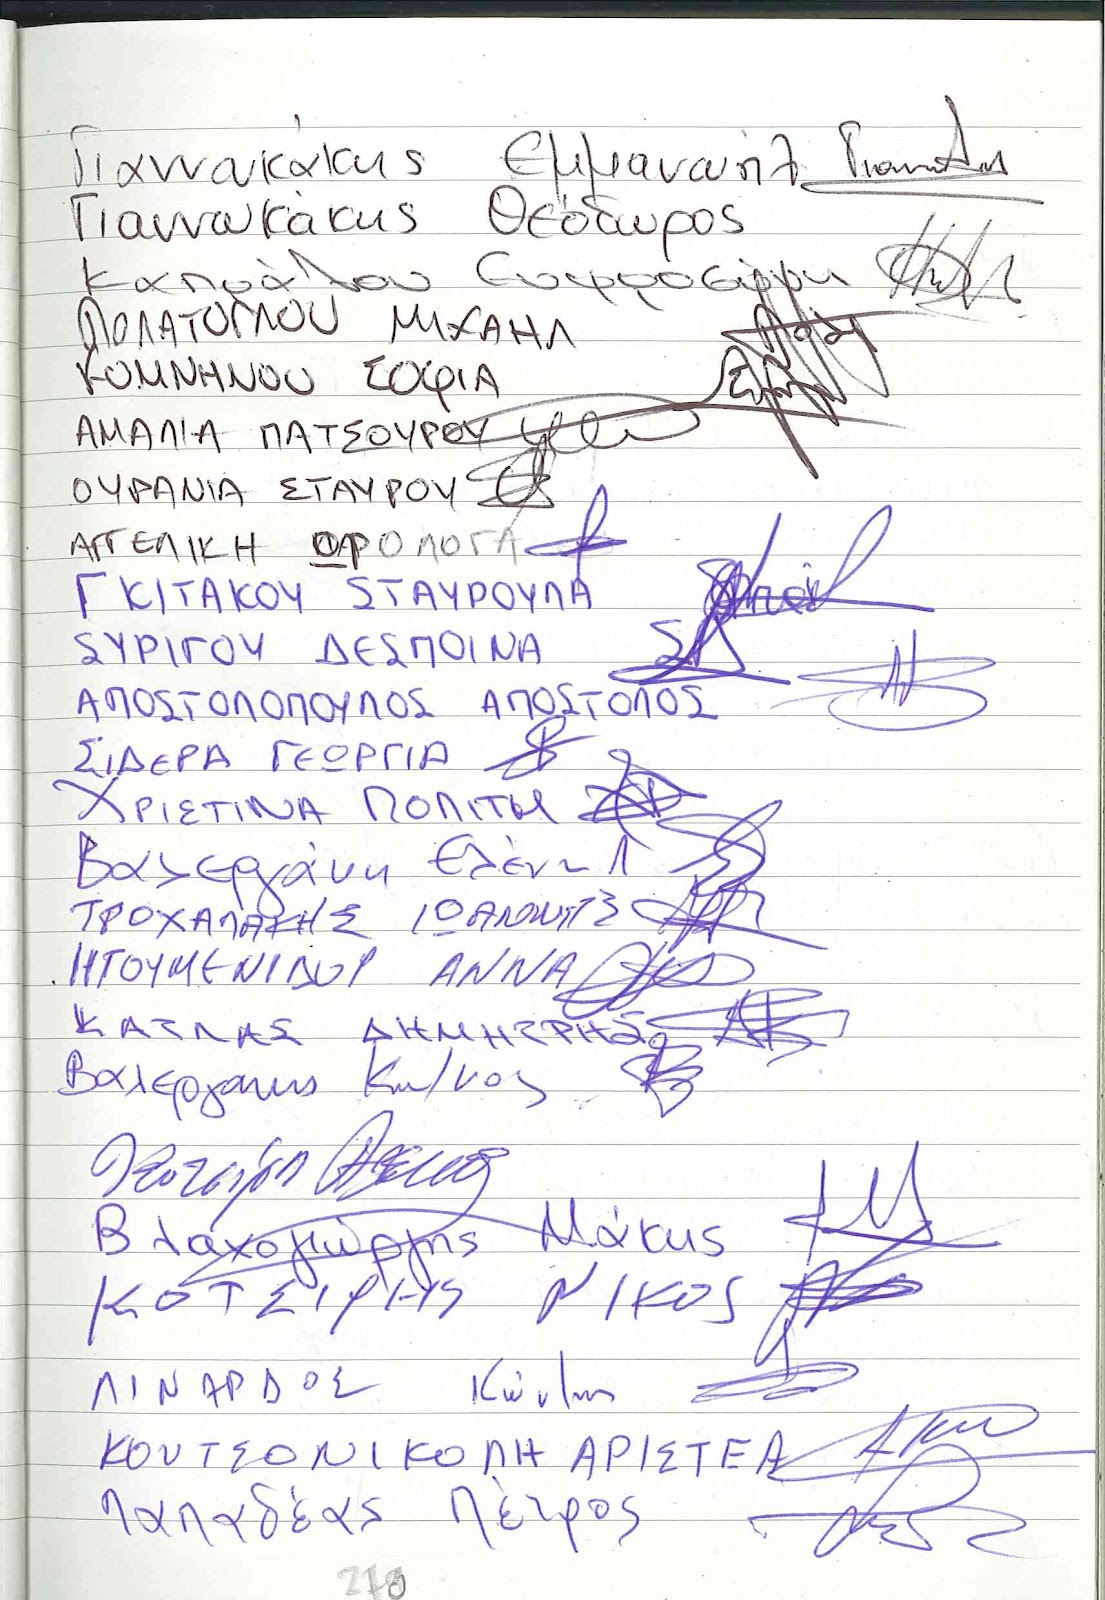 Γιαννακάκης Εμμανουήλ
Γιαννακάκης Θεόδωρος
Καπράλου Ευφροσύνη
ΠΟΛΑΤΟΓΛΟΥ ΜΙΧΑΗΛ
ΚΟΜΝΗΝΟΥ ΣΟΦΙΑ
ΑΜΑΛΙΑ ΠΑΤΣΟΥΡΟΥ
ΟΥΡΑΝΙΑ ΣΤΑΥΡΟΥ
ΑΓΓΕΛΙΚΗ ΩΡΟΛΟΓΑ
ΓΚΙΤΑΚΟΥ ΣΤΑΥΡΟΥΛΑ
ΣΥΡΙΓΟΥ ΔΕΣΠΟΙΝΑ
ΑΠΟΣΤΟΛΟΠΟΥΛΟΣ ΑΠΟΣΤΟΛΟΣ
ΣΙΔΕΡΑ ΓΕΩΡΓΙΑ
ΧΡΙΣΤΙΝΑ ΠΟΛΙΤΗ
Βαλεργάκη Ελένη Λ
ΤΡΟΧΑΛΑΚΗΣ ΙΩΑΝΝΗΣ
ΗΓΟΥΜΕΝΙΔΟΥ ΑΝΝΑ
ΚΑΤΝΑΣ ΔΗΜΗΤΡΗΣ
Βαλεργάκης Κων/νος
Βλαχογιώργης Μάκης
ΚΟΤΣΙΦΗΣ ΝΙΚΟΣ
ΛΙΝΑΡΔΟΣ Κώντης
ΚΟΥΤΣΟΝΙΚΟΛΗ ΑΡΙΣΤΕΑ
Παπαδέας Πέτρος
270